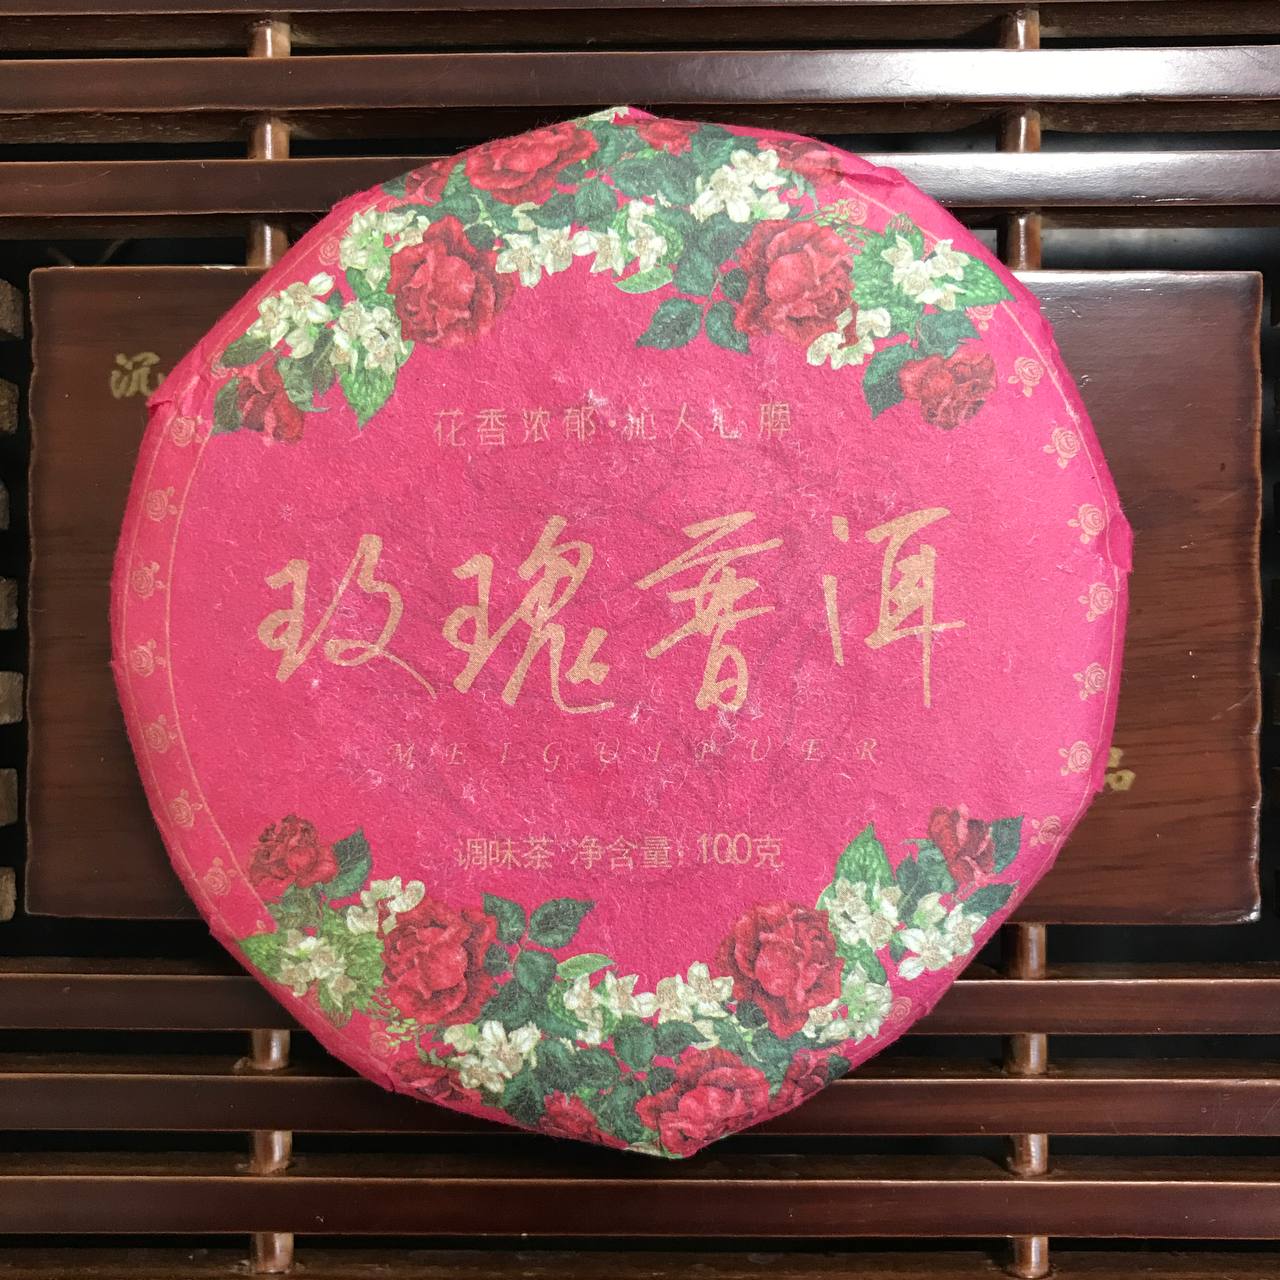 沉
花香浓郁·沁人心脾
玫瑰普洱
MEIGUIPUER
调味茶 净含量:100克
品